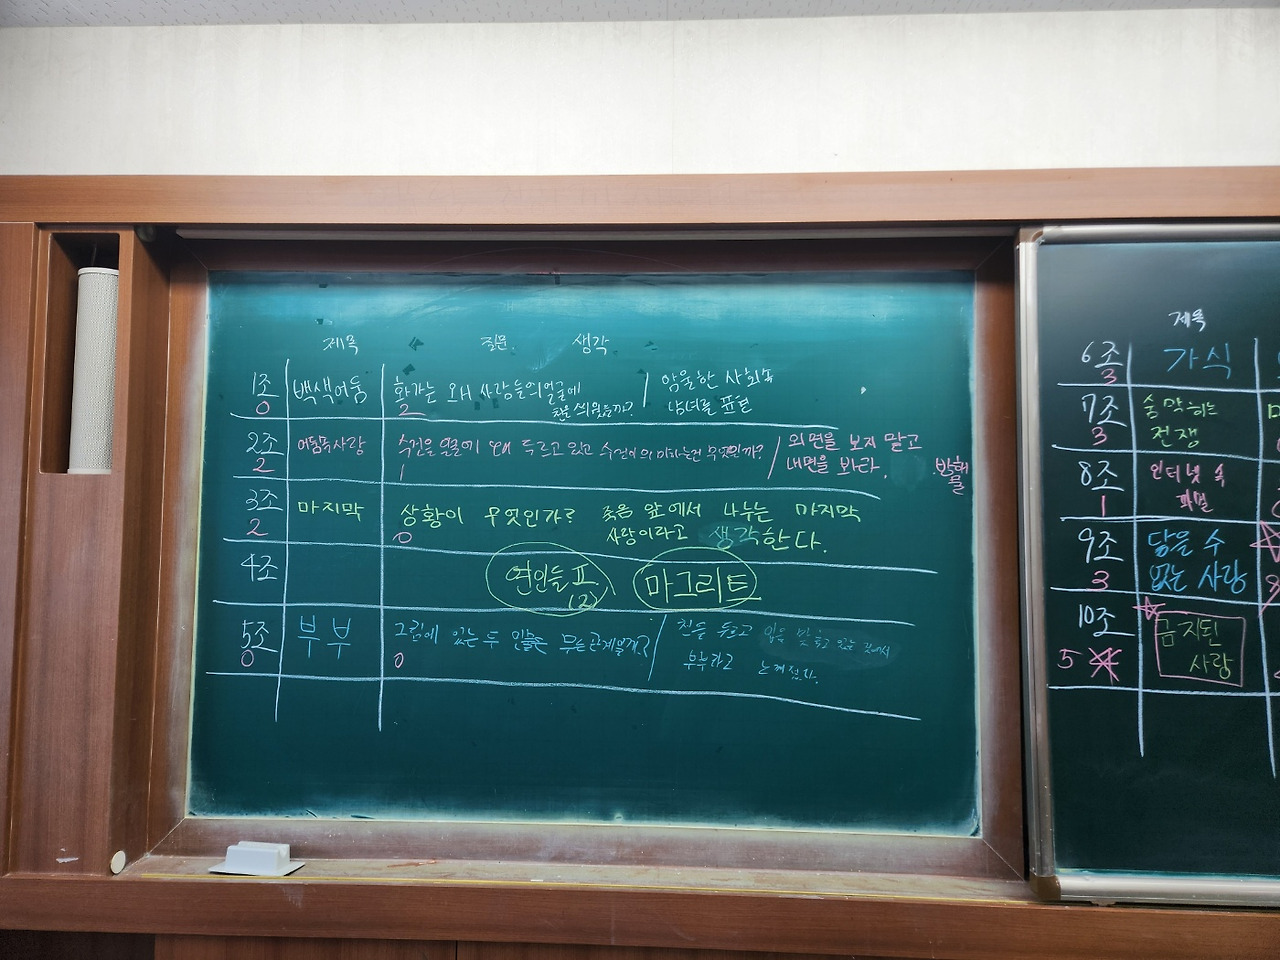 제목 질문. 생각
1조 백색어둠 화가는 왜 사람들의 얼굴에 / 암울한 사회속
0 2 천을 씌웠을까? 남녀를 표현
2조 어둠속사랑 수건을 얼굴에 왜 두르고 있고 수건이 의미하는건 무엇일까? / 외면을 보지 말고
2 1 내면을 봐라. 반해물
3조 마지막 상황이 무엇인가? 죽음 앞에서 나누는 마지막
2 0 사랑이라고 생각한다.
4조 연인들 II (2) 마그리트
5조 부부 그림에 있는 두 인물은 무슨관계일까? / 천을 두르고 입을 맞추고 있는 것에서
0 0 부부라고 느껴졌다.
제목
6조 가식
3
7조 숨막히는
3 전쟁
8조 인터넷 속
1 파멸
9조 닿을 수
3 없는 사랑
10조 금지된
5 사랑